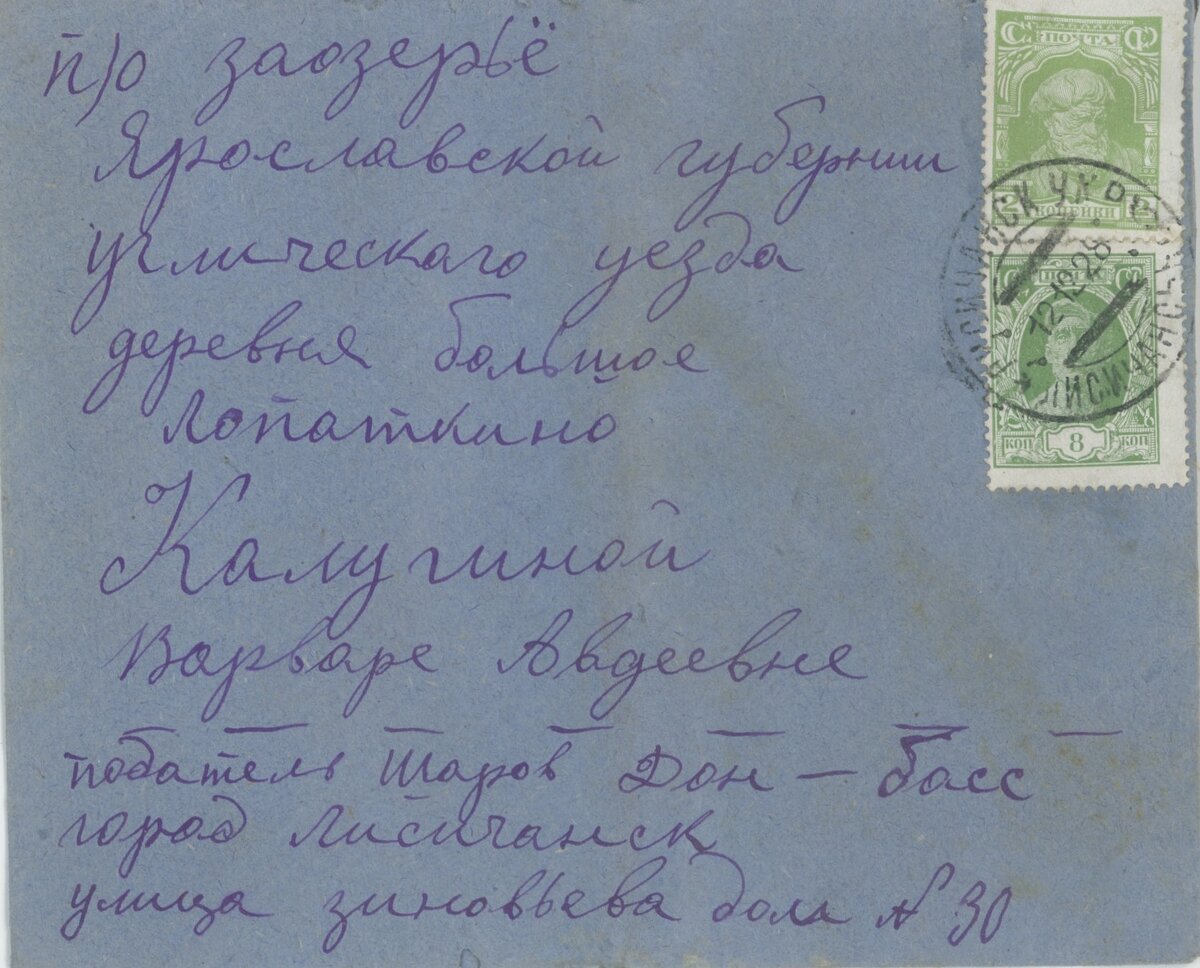 п/о заозерьё
Ярославской губернии
угличeскаго уезда
деревня большое
Лопаткино
Калугиной
Варваре Авдеевне
податель Шаров Дон — басс
город Лисичанск
улица зиновьева дом № 30
ПОЧТА
2 КОПЕЙКИ
ЛИСИЧАНСК УКР
12.12.28
ЛИСИЧАНСЬК
КОП 8 КОП